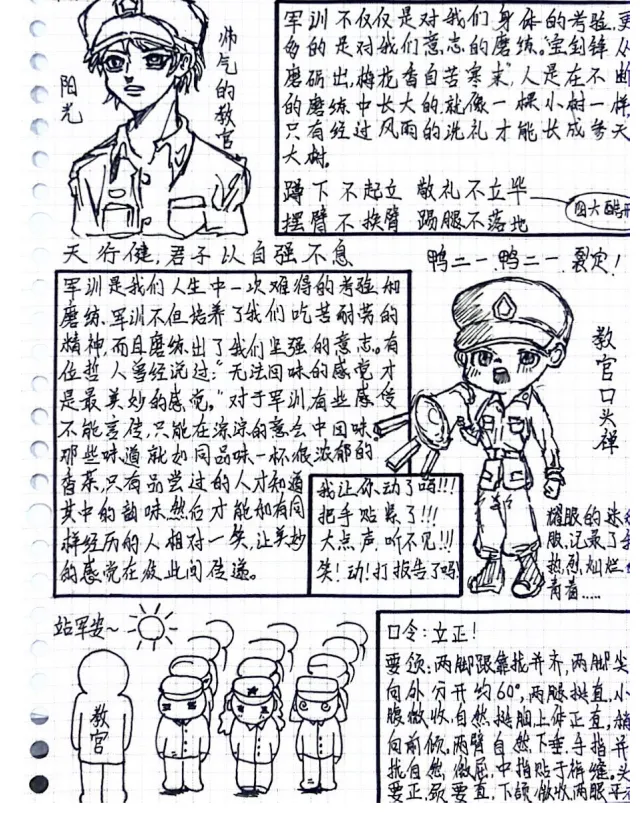 帅气的教官
阳光
军训不仅仅是对我们身体的考验,更
多的是对我们意志的磨练。"宝剑锋从
磨砺出,梅花香自苦寒来",人是在不断
的磨练中长大的,就像一棵小树一样,
只有经过风雨的洗礼才能长成参天
大树。
蹲下不起立 敬礼不立毕
摆臂不换臂 踢腿不落地
天行健,君子以自强不息
鸭二一鸭二一
军训是我们人生中一次难得的考验和
磨练,军训不但培养了我们吃苦耐劳的
精神,而且磨练出了我们坚强的意志。有
位哲人曾经说过:"无法回味的感觉才
是最美妙的感觉。"对于军训,有些感受
不能言传,只能在淙淙的意会中回味。
那些味道就如同品味一杯很浓郁的
香茶,只有品尝过的人才知道
其中的韵味,然后才能和有同
样经历的人相对一笑,让美妙
的感觉在彼此间传递。
教官口头禅
我让你动了嘛!!!
把手贴紧了!!!
大点声,听不见!!!
笑!动!打报告了吗
耀眼的迷
服,记录了
热烈灿烂
青春.....
站军姿~
教官
口令:立正!
要领:两脚跟靠拢并齐,两脚尖
向外分开约60°,两腿挺直,小
腹微收,自然挺胸上体正直,
向前倾,两臂自然下垂,手指并
拢自然微屈,中指贴于裤缝。头
要正,颈要直,下颌微收,两眼平